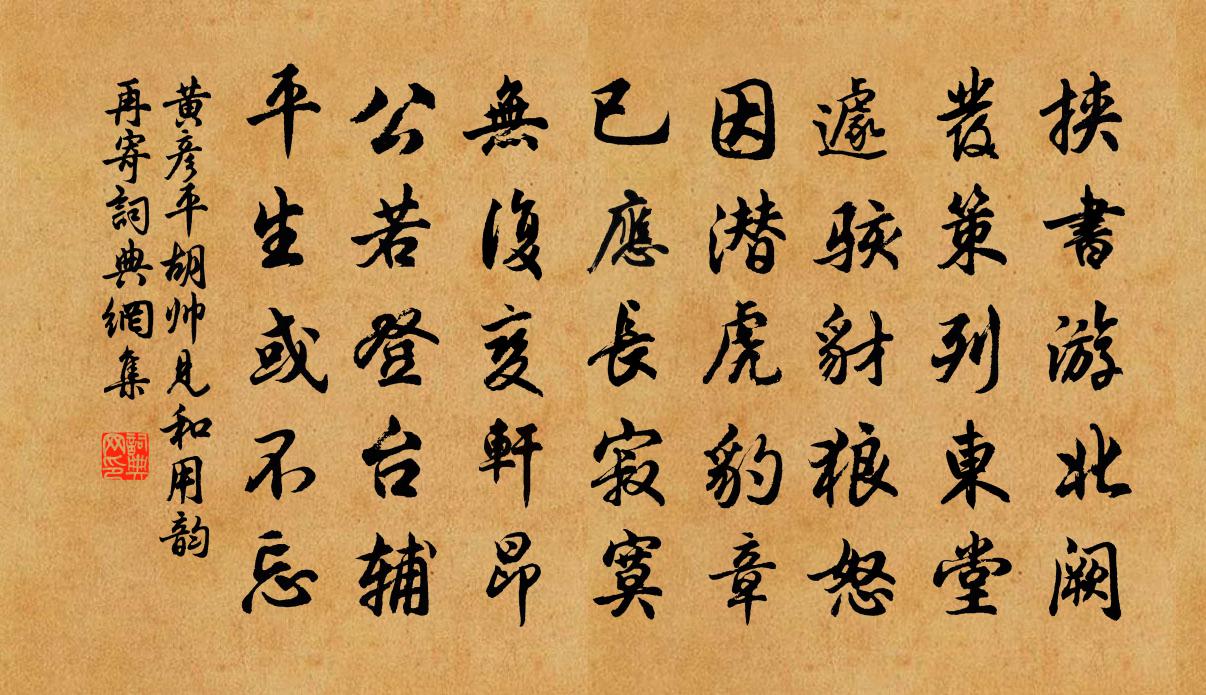 挟書游北阙
發策列東堂
遽駭豺狼怒
因潜虎豹章
已應長寂寞
無復變軒昂
公若登台輔
平生或不忘
黄彦平胡帅見和用韵
再寄詞典網集
詞典网印